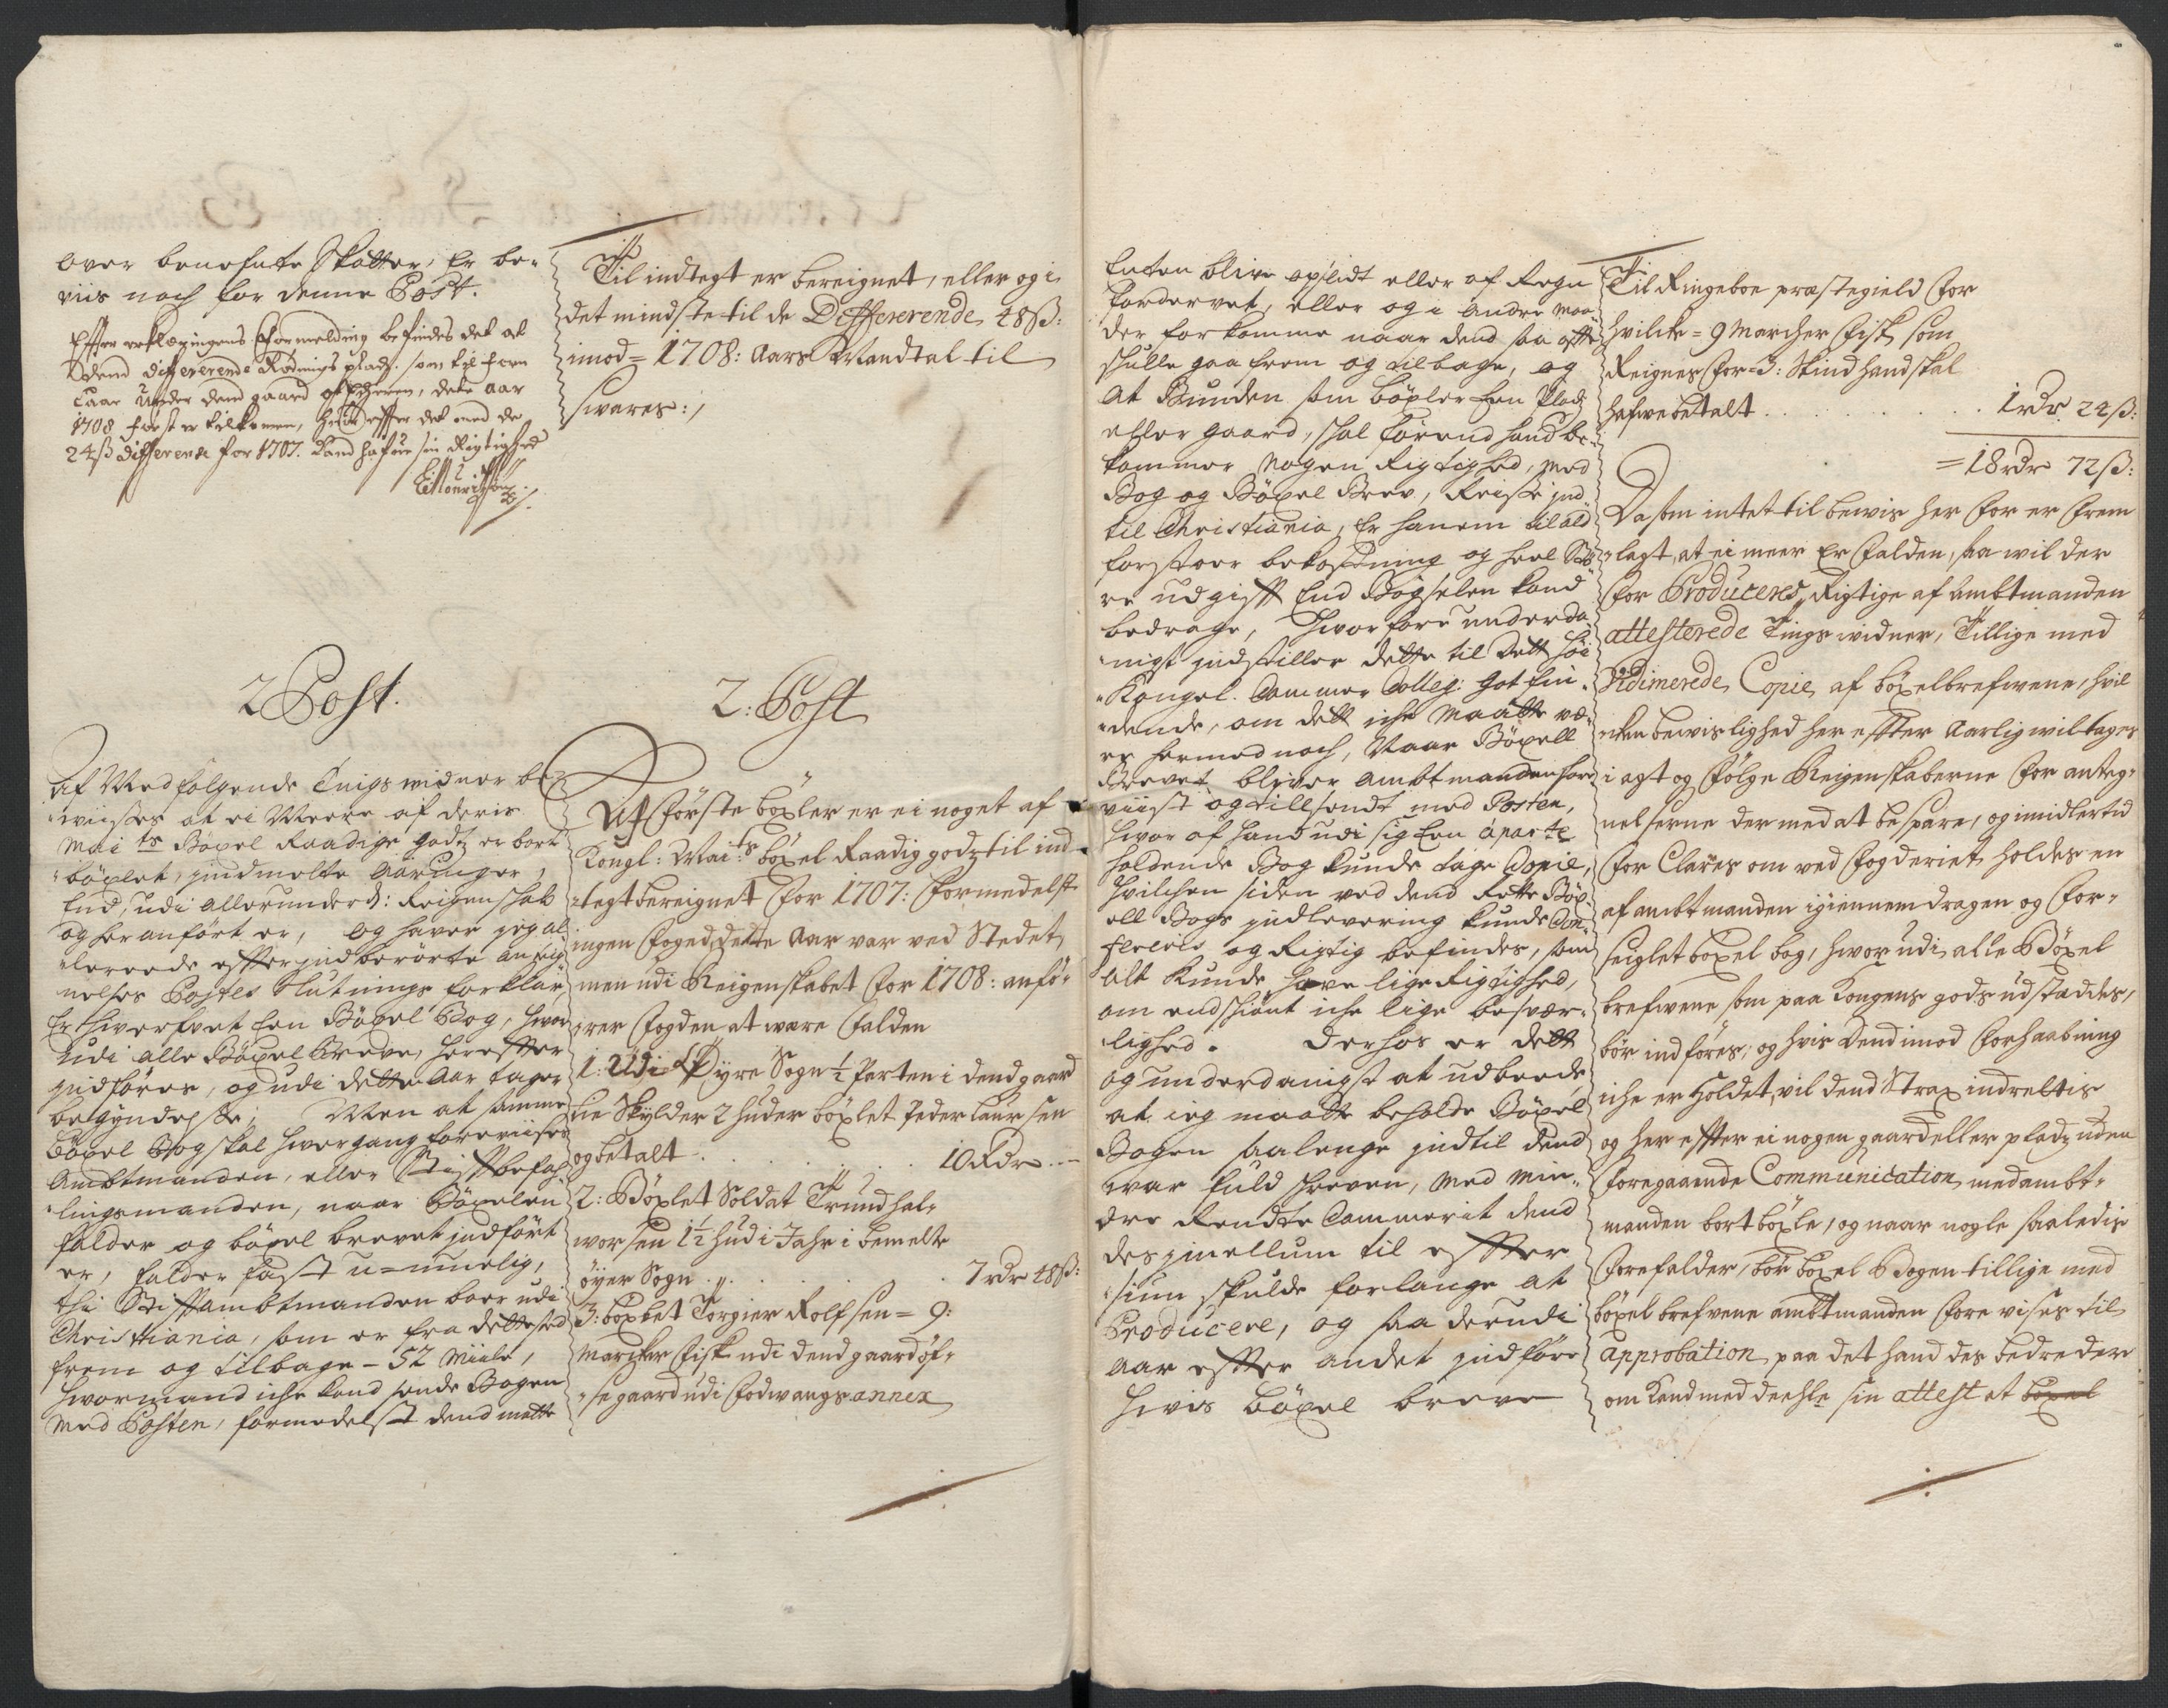 over benefnte Skatter, Er be-
viis noch for denne Post.
Efter erklæringens formelding befindes det at
dend differerende Rødnings plads, som til fem
under dend gaard, dette Aar
1708 først er tilkomen, efter det med de
24 ß differende for 1707. kand hafue sin Rigtighed
2 Post.
Af Medfølgende Tings widner be-
wiisses at ei Meere af deris
Maits Bøxel Raadige Godz er bort
bøxlet, indmelte Aaringer,
End, udi allerunderd: Reigenskab
og her anført er, og haver jeg al-
lereede efter indberørte anteig-
nelses Postes Slutnings forklar,
Er hverfvet Een Bøxel Bog, hvor
udi alle Bøxel Breve, herefter
indføres, og udi dette Aar tager
begyndelse; Men at samme
Bøxel Bog skal hvergang foreviises
Ambtmanden, eller Stiftbefah-
lingsmanden, naar Bøxelen
falder og bøxel brevet indført
er, falder fast u-muelig,
thi Stiftambtmanden boer udi
Christiania, som er fra dette sted
frem og tilbage - 52 Miile,
hvor mand iche kand sende Bogen
med Posten, formedelst dend matte
Til indtegt er bereignet, eller og i
det mindste til de Differerende 48 ß:
imod = 1708: Aars Mandtal til
svares:/
2: Post
Af første bøxler er ei noget af
Kongl: Maits bøxel Raadig godz til ind-
tegt bereignet for 1707: formedelst
ingen foged dette Aar var ved Stedet,
men udi Reigenskabet for 1708: anfø-
rer fogden at være falden
1: Udi Øyre Sogn ½ Parten i dend gaard
Lie Skylder 2 huder bøxlet Peder Laursen
og betalt . . . 10 Rdr. -
2: Bøxlet Soldat Trund hal-
worsen 1½ hud i Jahr i bemelte
øyer Sogn . . . 7 rdr 48 ß:
3: bøxlet Torgier Rolfsen = 9:
Marcher Fisk udi dend gaard øf-
segaard udi Fodwangs annex
Enten blive opslidt eller af Regn
fordervet, eller og i andre maa-
der forkomme naar dend saa ofte
skulle gaa frem og tilbage, og
At Bunden som bøxler Een Pladz
eller gaard, skal førend hand be-
kommer Nogen Rigtighed, med
Bog og Bøxel Brev, Reisse ind
til Christiania, Er hanem al ald
for stoer bekostning og heel Stø-
re udgift End Bøgselen kand
bedrage, Hvorfore underda-
nigst indstiller dette til Dett høi
Kongel. Cammer Colleg: Gotfin-
dende, om dett iche Maatte væ-
re hermed noch, Naar Bøxell
Brevet bliver ambtmanden fore
viist og tillsendt med Posten,
hvor af hand udi sig Een aparte
holdende Bog kunde tage Copie,
hvilchen siden ved dend Rette Bøx-
ell Bogs indlevering kunde Con-
fereris og Rigtig befindes, som
alt kunde have lige Rigtighed,
om endskiønt iche lige besvær-
lighed. Derhos er dett
og underdanigst at udbeede
at ieg maatte beholde Bøxel
Bogen saalenge indtil dend
war fuld skreven, med min-
dre Rendte Cammerit dend
des imellum til efter
siun skulde forlange at
Producere, og saa derudi
Aar efter andet indføre
hvis bøxel breve
Til Ringeboe præstegield for
hvilche = 9 Marcher Fisk, som
Reignes for = 3: Skind hand skal
hafwe betalt . . . 1 rdr 24 ß:
= 18 rdr 72 ß:
Da som intet til bewis her for er frem
lagt, at ei meer Er falden, saa wil der
for Produceres, Rigtige af ambtmanden
attesterede Tings widner, Tillige med
Vidimerede Copie af bøxelbrefwene, hvil
chen bewislighed her efter aarlig wil tages
i agt og følge Reigenskaberne for anteg-
nelserne der med at bespare, og imidlertid
for Clares om ved fogderiet holdes en
af ambtmanden igiennemdragen og for-
seiglet bøxel bog, hvor udi alle Bøxel
brefwene som paa Kongens gods udstæddes,
bør indføres, og hvis dend imod forhaabning
iche er holdet, vil dend Strax indrettis
og her efter ei nogen gaard eller pladz uden
foregaaende Communication med ambt-
manden bort bøxle, og naar nogle saaledis
forefalder, bør bøxel Bogen tillige med
bøxel brefvene ambtmanden fore vises til
Approbation paa det hand des bedre der
om kand meddeehle sin attest at bøxel